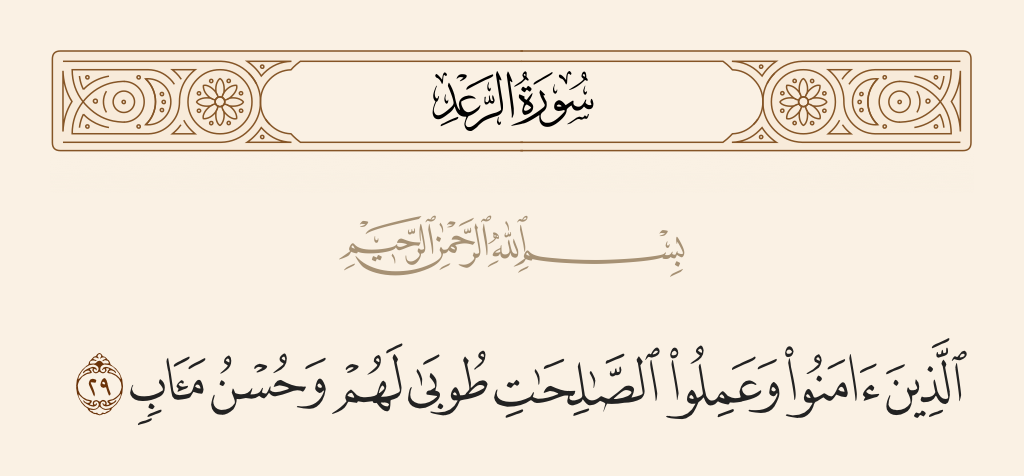 سُورَةُ الرَّعْدِ
بِسْمِ ٱللَّهِ ٱلرَّحْمَٰنِ ٱلرَّحِيمِ
ٱلَّذِينَ ءَامَنُوا۟ وَعَمِلُوا۟ ٱلصَّـٰلِحَـٰتِ طُوبَىٰ لَهُمْ وَحُسْنُ مَـَٔابٍ ٢٩